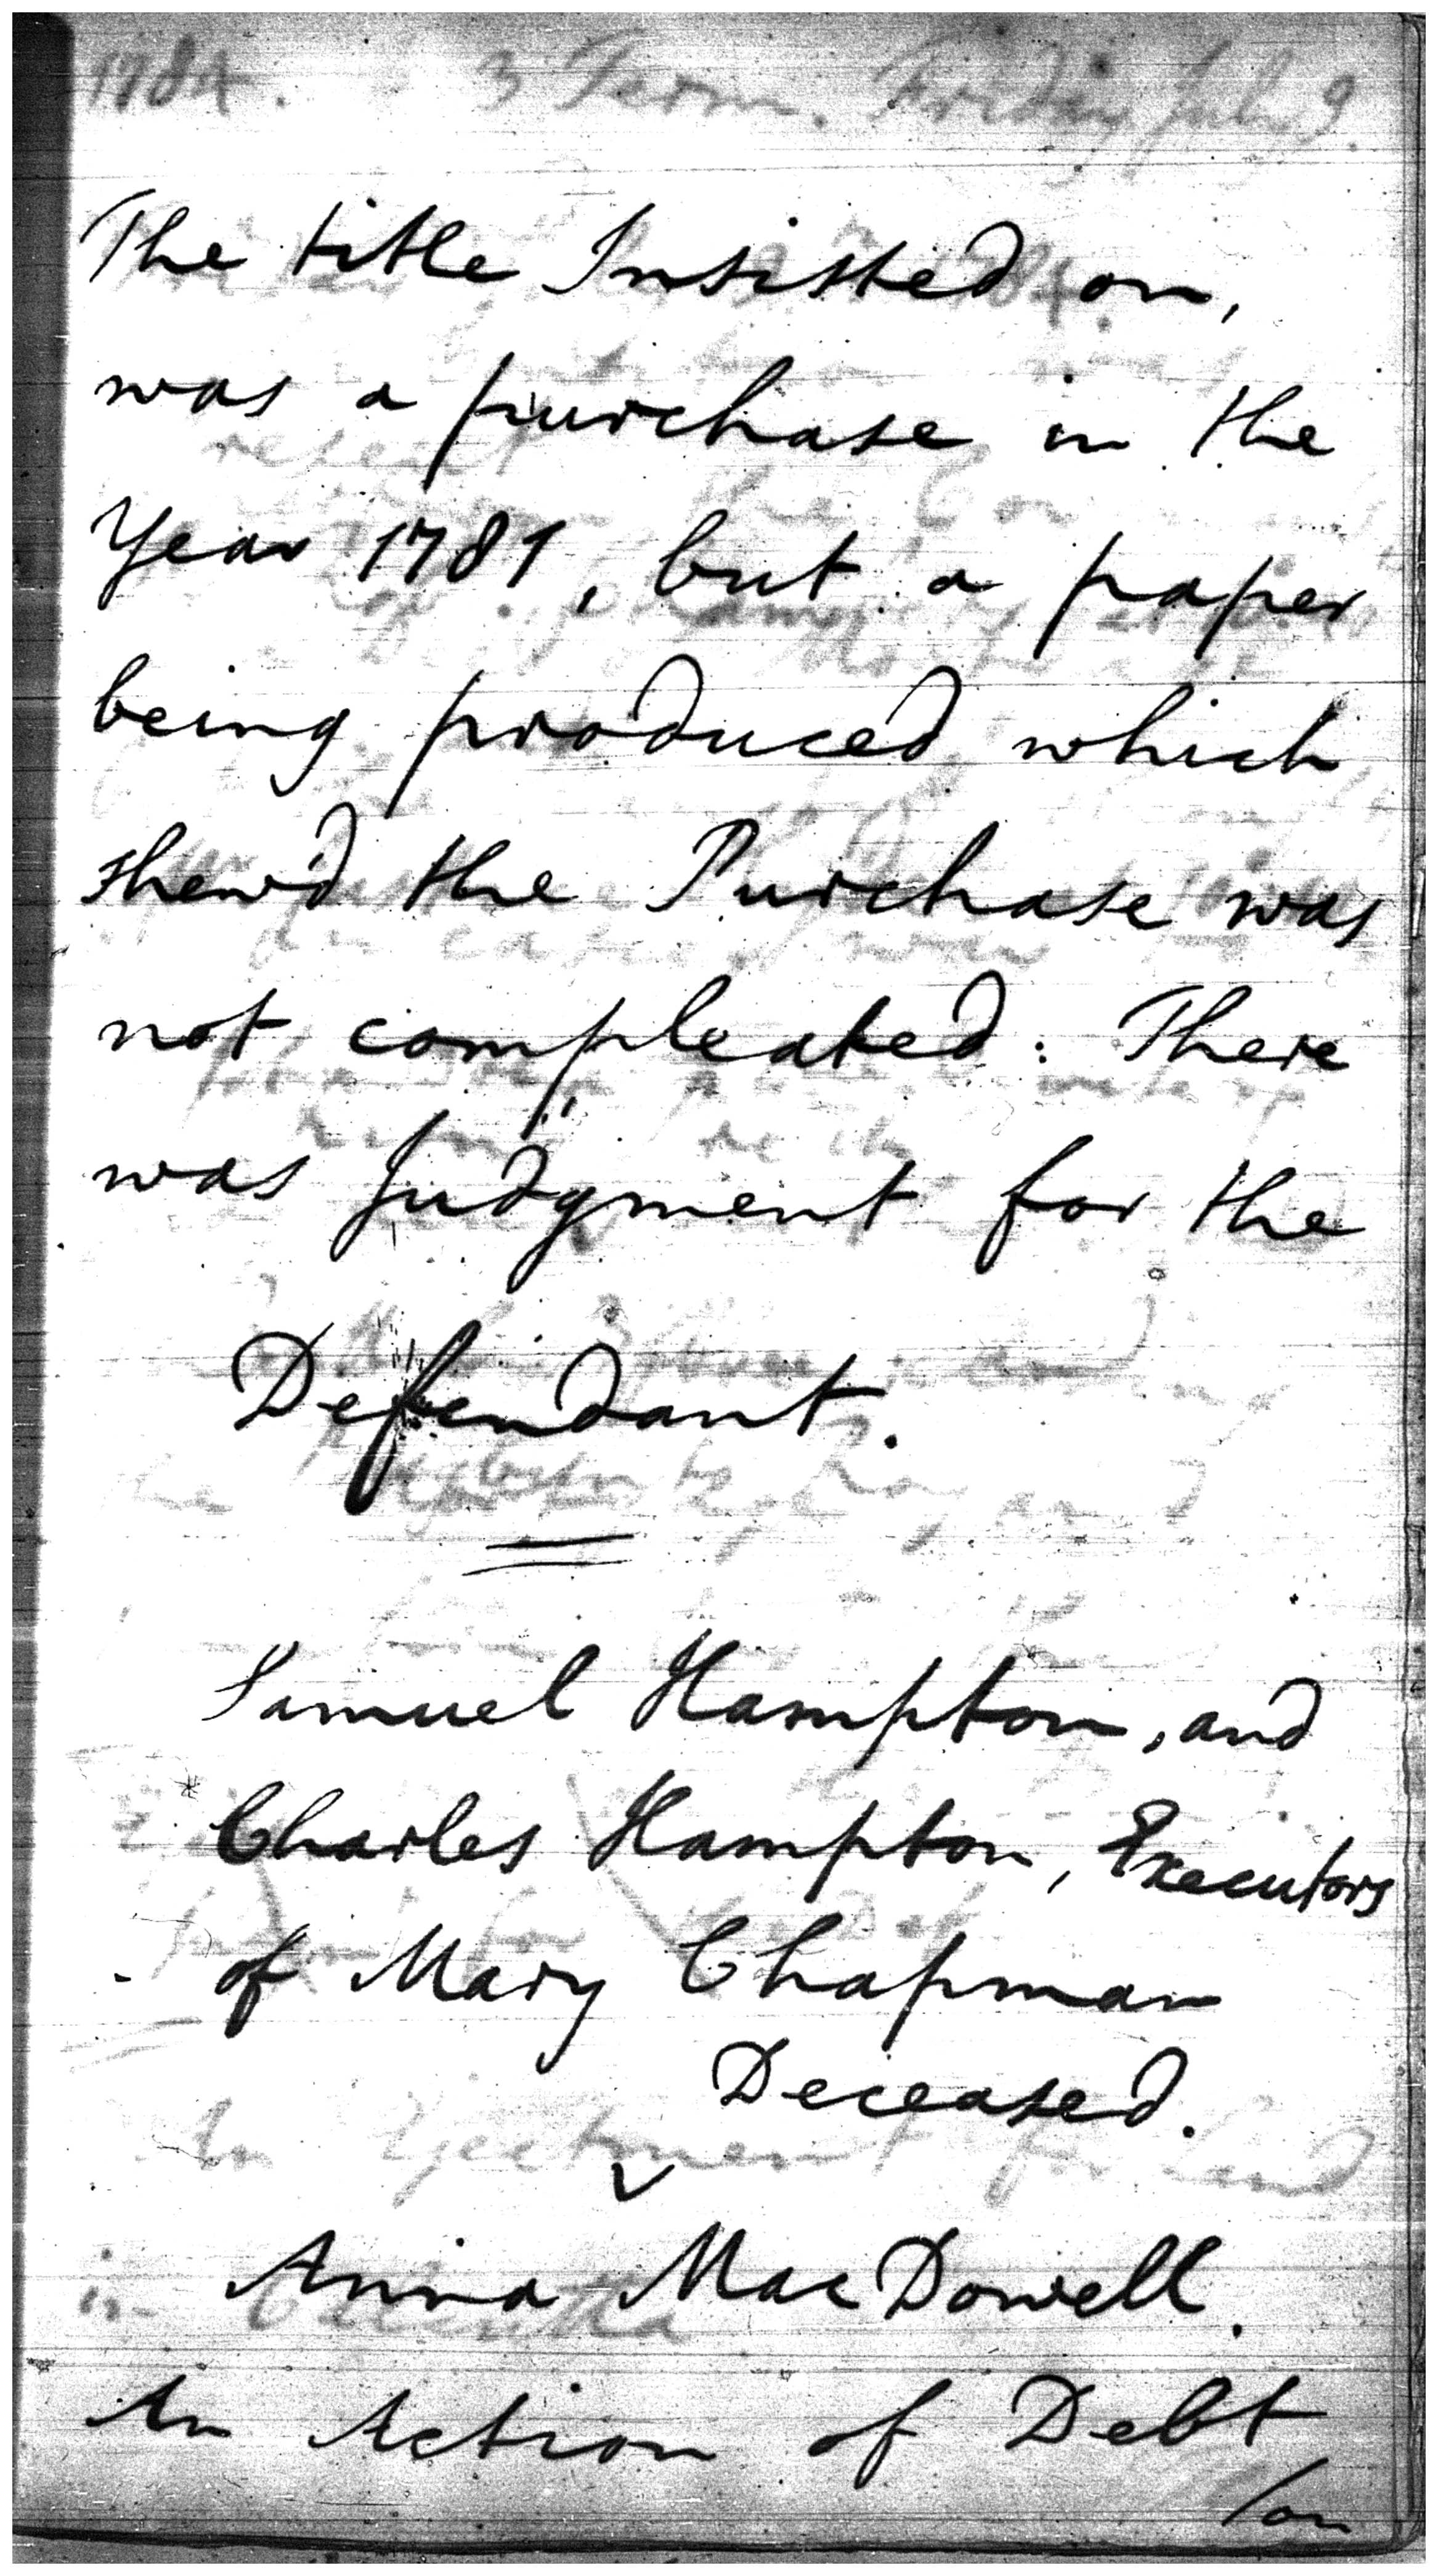 1784. 3 Term. Friday July 9.
The title Insisted on,
was a purchase in the
Year 1781, but a paper
being produced which
shew'd the Purchase was
not compleated: There
was Judgment for the
Defendant.
Samuel Hampton, and
Charles Hampton, Executors
of Mary Chapman
Deceased.
v
Anna MacDowell.
An Action of Debt
/on